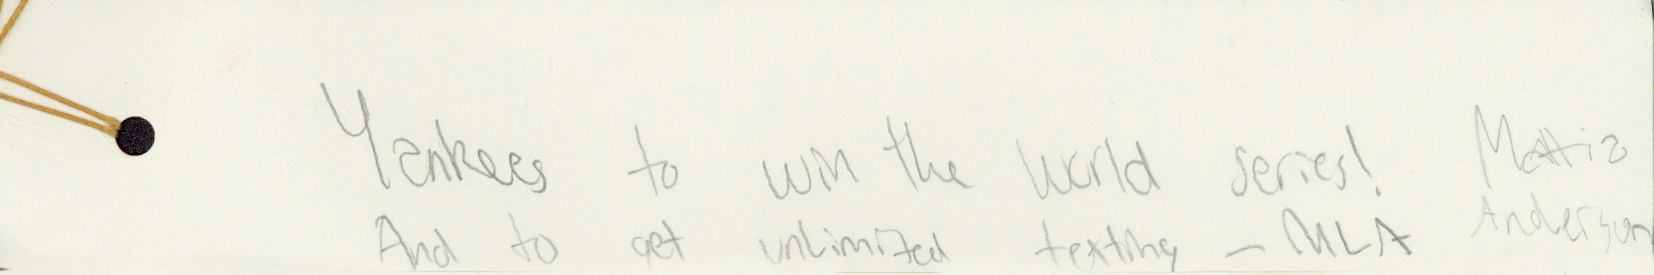 Yankees to win the World series!
And to get unlimited texting - MLA
Mattia
Anderson